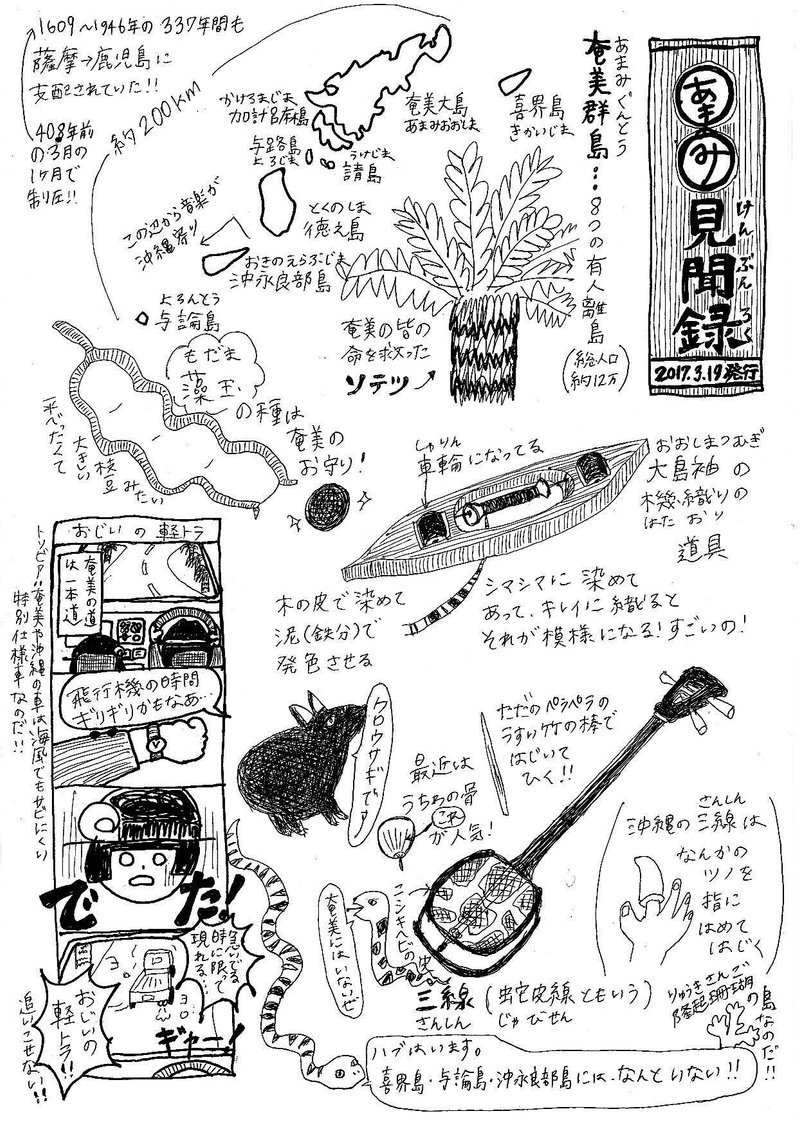 あまみ
見聞録
けんぶんろく
2017.3.19発行
あまみぐんとう
奄美群島…8つの有人離島
(総人口
約12万)
1609〜1946年の337年間も
薩摩→鹿児島に
支配されていた!!
408年前
の3月の
1ヶ月で
制圧!!
約200km
かけろまじま
加計呂麻島
与路島
よろじま
うけじま
請島
奄美大島
あまみおおしま
喜界島
きかいじま
とくのしま
徳之島
この辺から音楽が
沖縄祭り
おきのえらぶじま
沖永良部島
よろんとう
与論島
奄美の皆の
命を救った
ソテツ
もだま
藻玉
の種は
奄美の
お守り!
平べったくて
大きい
枝豆みたい
しゃりん
車輪になってる
おおしまつむぎ
大島袖の
機織りの
はたおり
道具
木の皮で染めて
泥(鉄分)で
発色させる
シマシマに染めて
あって、キレイに織ると
それが模様になる!すごいの!
トリビア:奄美や沖縄の車は海風でもサビにくい
特別仕様車なのだ!!
おじいの軽トラ
奄美の道
は一本道
飛行機の時間
ギリギリかもなあ…
でた!
急いでる
時に限って
現れる…
ヨロ
ヨロ
ギャー!
おじいの
軽トラ!!
追いこせない!!
クロウサギです
ただのペラペラの
うすい竹の棒で
はじいて
ひく!!
最近は
うちわの骨
これ
が人気!
(沖縄の三線は
さんしん
なんかの
ツノを
指に
はめて
はじく)
ニシキヘビの皮
奄美にはいないぜ
三線(蛇皮線ともいう)
さんしん
じゃびせん
りゅうきさんご
隆起珊瑚の島なのだ!!
ハブはいます。
喜界島・与論島・沖永良部島には、なんといない!!